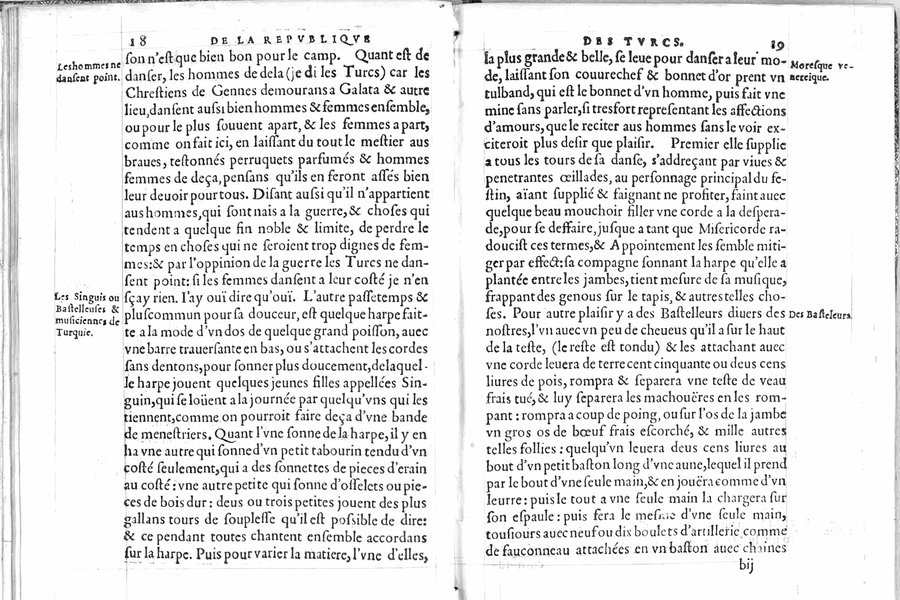 18 DE LA REPVBLIQVE
Les hommes ne
dansent point.
son n'est que bien bon pour le camp. Quant est de
danser, les hommes de dela (je di les Turcs) car les
Chrestiens de Gennes demourans a Galata & autre
lieu, dansent aussi bien hommes & femmes ensemble,
ou pour le plus souuent apart, & les femmes a part,
comme on fait ici, en laissant du tout le mestier aus
braues, testonnés perruquets parfumés & hommes
femmes de deça, pensans qu'ils en feront assés bien
leur deuoir pour tous. Disant aussi qu'il n'appartient
aus hommes, qui sont nais a la guerre, & choses qui
tendent a quelque fin noble & limite, de perdre le
temps en choses qui ne seroient trop dignes de fem-
mes: & par l'oppinion de la guerre les Turcs ne dan-
sent point: si les femmes dansent a leur costé je n'en
sçay rien. I'ay ouï dire qu'ouï. L'autre passetemps &
Les Singuis ou
Bastelleuses &
musiciennes de
Turquie.
pluscommun pour sa douceur, est quelque harpe fait-
te a la mode d'vn dos de quelque grand poisson, auec
vne barre trauersante en bas, ou s'attachent les cordes
sans dentons, pour sonner plus doucement, delaquel-
le harpe jouent quelques jeunes filles appellées Sin-
guin, qui se loüent a la journée par quelqu'vns qui les
tiennent, comme on pourroit faire deça d'vne bande
de menestriers. Quant l'vne sonne de la harpe, il y en
ha vne autre qui sonne d'vn petit tabourin tendu d'vn
costé seulement, qui a des sonnettes de pieces d'erain
au costé: vne autre petite qui sonne d'osselets ou pie-
ces de bois dur: deus ou trois petites jouent des plus
gallans tours de souplesse qu'il est possible de dire:
& ce pendant toutes chantent ensemble accordans
sur la harpe. Puis pour varier la matiere, l'vne d'elles,
DES TVRCS. 19
la plus grande & belle, se leue pour danser a leur mo-
de, laissant son couurechef & bonnet d'or prent vn
tulband, qui est le bonnet d'vn homme, puis fait vne
mine sans parler, si tresfort representant les affections
d'amours, que le reciter aus hommes sans le voir ex-
citeroit plus desir que plaisir. Premier elle supplie
a tous les tours de sa danse, s'addreçant par viues &
penetrantes œillades, au personnage principal du fe-
stin, aïant supplié & faignant ne profiter, faint auec
quelque beau mouchoir filler vne corde a la despera-
de, pour se deffaire, jusque a tant que Misericorde ra-
doucist ces termes, & Appointement les semble miti-
ger par effect: sa compagne sonnant la harpe qu'elle a
plantée entre les jambes, tient mesure de sa musique,
frappant des genous sur le tapis, & autres telles cho-
ses. Pour autre plaisir y a des Bastelleurs diuers des
nostres, l'vn auec vn peu de cheueus qu'il a sur le haut
de la teste, (le reste est tondu) & les attachant auec
vne corde leuera de terre cent cinquante ou deus cens
liures de pois, rompra & separera vne teste de veau
frais tué, & luy separera les machouëres en les rom-
pant: rompra a coup de poing, ou sur l'os de la jambe
vn gros os de bœuf frais escorché, & mille autres
telles follies: quelqu'vn leuera deus cens liures au
bout d'vn petit baston long d'vne aune, lequel il prend
par le bout d'vne seule main, & en jouëra comme d'vn
leurre: puis le tout a vne seule main la chargera sur
son espaule: puis fera le mesme d'vne seule main,
tousiours auec neuf ou dix boulets d'artillerie comme
de fauconneau attachées en vn baston auec chaines
bij
Moresque ve-
nereique.
Des Basteleurs.